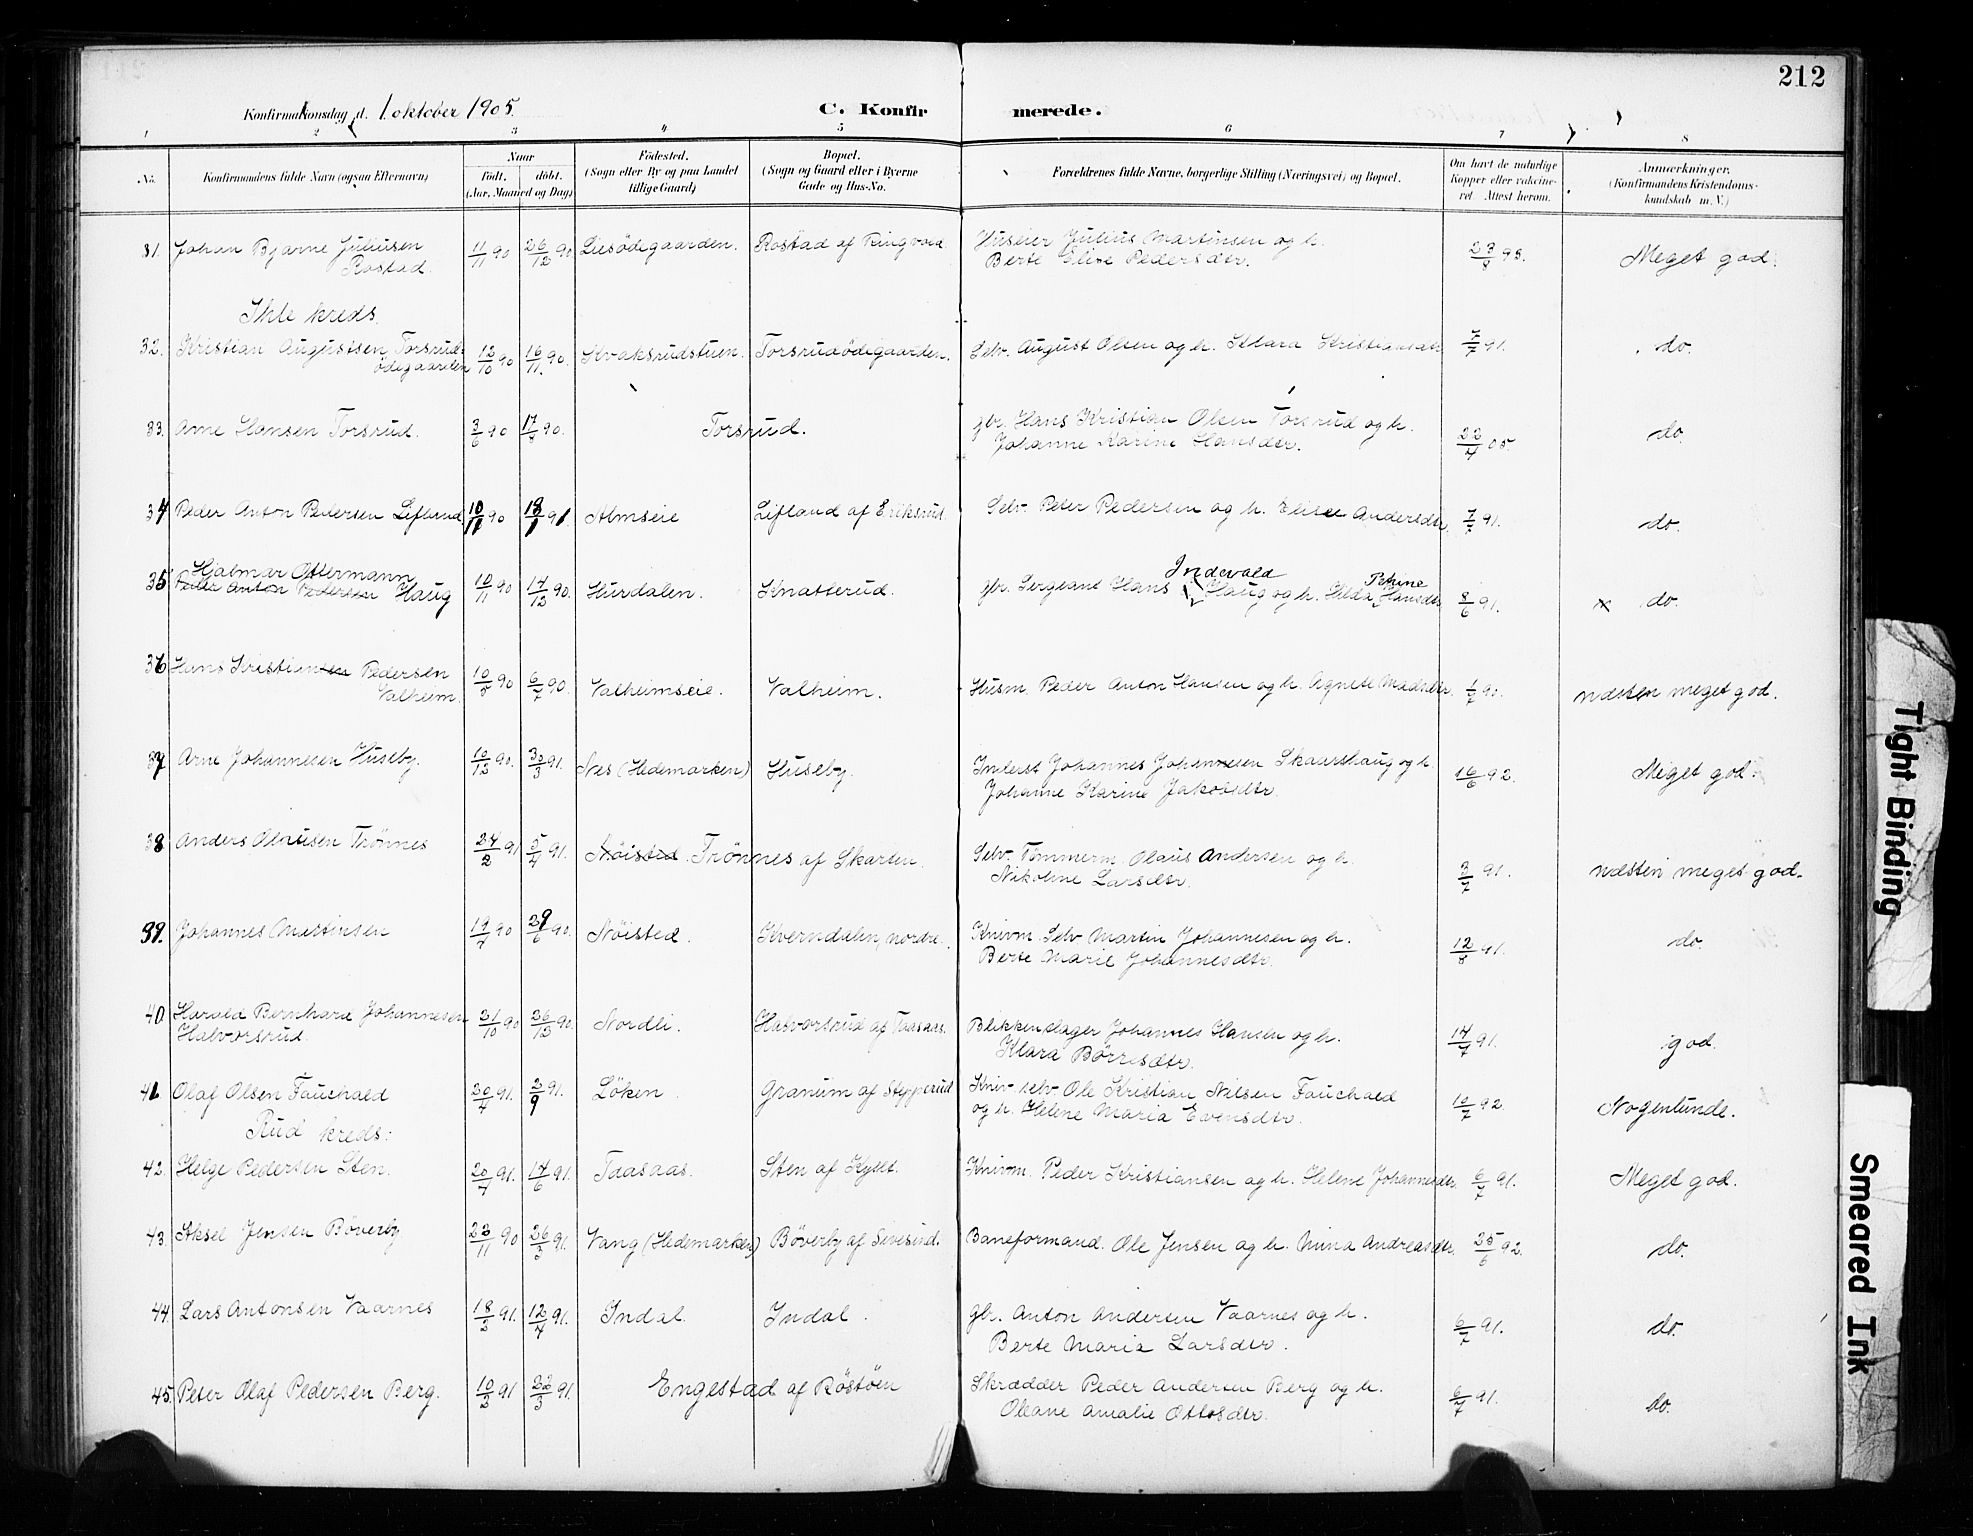 212
Konfirmationsdag d. 1 oktober 1905.
C. Konfir merede.
1 2 3 4 5 6 7 8
No. Konfirmandens fulde Navn (ogsaa Efternavn) Naar Født. døbt. (Aar, Maaned og Dag) Fødested. (Sogn eller By og paa Landet tillige Gaard) Bopæl. (Sogn og Gaard eller i Byerne Gade og Hus-No. Forældrenes fulde Navne, borgerlige Stilling (Næringsvei) og Bopæl. Om havt de naturlige Kopper eller vaccineret Attest herom. Anmærkninger. (Konfirmandens Kristendomskundskab m. V.)
31. Johan Bjarne Juliusen 11/11 90 26/12 90 Liesødegaarden. Rostad af Ringvold Huseier Julius Martinsen og h. 23/8 95. Meget god.
Rostad. Berte Eline Pedersdtr.
Ihle kreds.
32. Kristian Augustsen Torsrud- 12/10 90 16/11 90. Kvaksrudstuen. Torsrudødegaarden. Selv. August Olsen og h. Klara Kristiansdtr 7/7 91. do.
ødegaarden
33. Arne Hansen Torsrud. 3/6 90 17/8 90. Torsrud. gbr. Hans Kristian Olsen Torsrud og h. 22/4 05. do.
Johanne Karine Hansdtr.
34 Peder Anton Pedersen Lifland 10/11 90 18/1 91 Almseie Lifland af Eriksrud. Selv. Peter Pedersen og h. Elise Andersdtr. 7/7 91. do.
Hjalmar Ottermann Indevald Petrine
35 Peder Anton Pedersen Haug 10/11 90 14/12 90. Hurdalen. Knatterud. gbr. Sergeant Hans Haug og h. Hilda Hansdtr 8/6 91. x do.
36 Hans Kristiansen Pedersen 10/5 90 6/7 90. Valheimseie. Valheim. Husm. Peder Anton Hansen og h. Agnete Madsdtr. 1/7 90. næsten meget god.
Valheim.
37 Arne Johannesen Huseby. 10/12 90. 30/3 91. Nes (Hedemarken) Huseby. Inderst Johannes Johannesen Skaarshaug og h. 16/6 92. Meget god.
Johanne Karine Jakobsdtr.
38 Anders Olausen Trønnes 24/2 91 5/4 91. Nøisted. Trønnes af Skarten. Selv. Tømmerm. Olaus Andersen og h. 3/7 91. næsten meget god.
Nikoline Larsdtr.
39. Johannes Martinsen 19/4 90 29/6 90. Nøisted. Kverndalen, nordre. Knivm. Selv Martin Johannesen og h. 12/8 91. do.
Berte Marie Johannesdtr.
40. Harald Bernhard Johannesen 31/10 90 26/12 90. Nordli. Halvorsrud af Taasaas. Blikkenslager Johannes Hansen og h. 14/7 91. god.
Halvorsrud. Klara Børresdtr.
41. Olaf Olsen Fauchald 30/4 91. 2/9 91. Løken. Granum af Stepperud Kniv. selv. Ole Kristian Nilsen Fauchald 10/7 92 Nogenlunde.
og h. Helene Maria Evensdtr.
Rud kreds:
42. Helge Pedersen Sten. 20/4 91. 14/6 91. Taasaas. Sten af Kyset. Knivm. Peder Kristiansen og h. Helene Johannesdtr. 6/7 91. Meget god.
43. Aksel Jensen Bøverby 23/11 90 26/3 91. Vang (Hedemarken) Bøverby af Sivesind. Baneformand. Ole Jensen og h. Mina Andreasdtr. 25/6 92. do.
44. Lars Antonsen Vaarnes 18/2 91. 12/4 91. Indal. Indal. gbr. Anton Andersen Vaarnes og h. 6/7 91. do.
Berte Maria Larsdtr.
45. Peter Olaf Pedersen Berg. 10/2 91 22/3 91. Engestad af Røstøen Skrædder Peder Andersen Berg og h. 6/7 91. do.
Oleane Amalie Ottosdtr.
Tight Binding
Smeared Ink